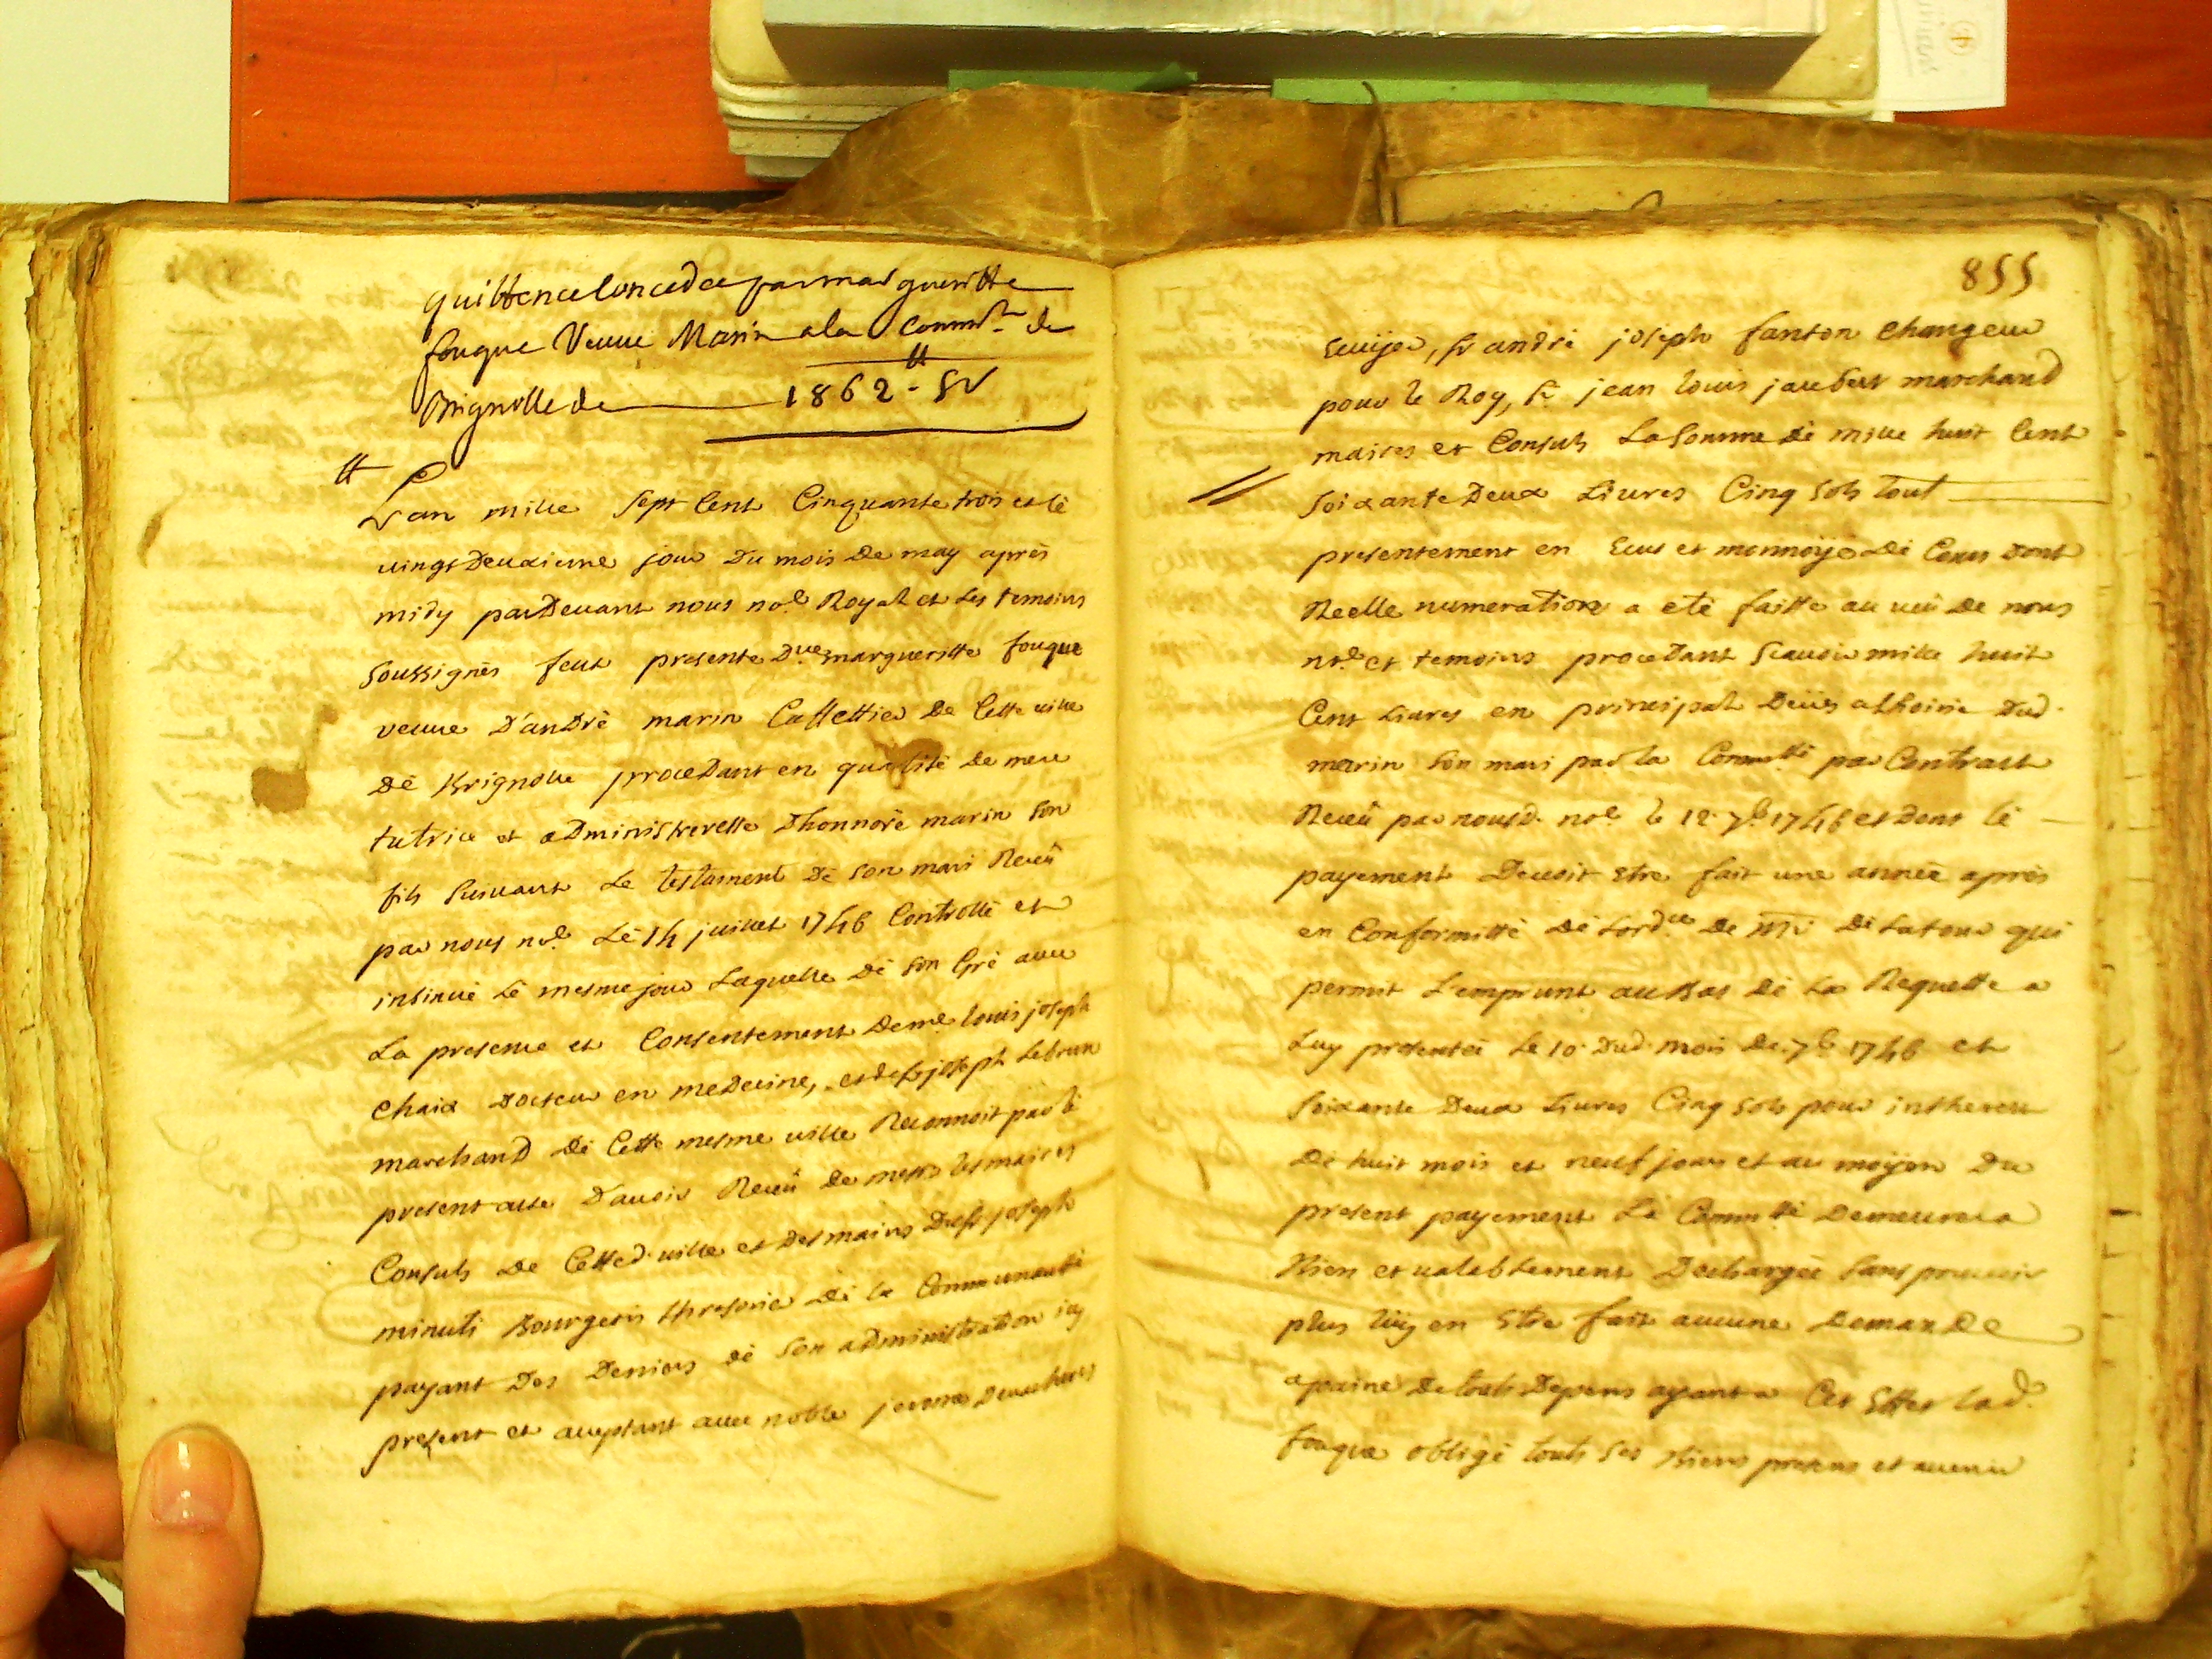 quittence concedée par margueritte
fouque Veuve Marin a la Commté de
Brignolle de 1862 tt 5 s
L'an mille sept cent cinquante trois et le
vingt Deuxieme jour Du mois De may après
midy par Devant nous nore Royal et les temoins
soussignés feut presente Dlle margueritte fouque
veuve D'andré marin Caffettier De Cette ville
De Brignolle procedant en qualité de mere
tutrice et administreresse D'honnoré marin son
fils suivant le testament De son mari Receü
par nous nore Le 14 juillet 1746 Controllé et
insinué le mesme jour Laquelle de son Gré avec
La presence et Consentement De me louis joseph
Chaix Docteur en medecine, et de sr joseph Lebrun
marchand de Cette mesme ville Reconnoit par le
present acte D'avoir Receü de messrs les maires
Consuls de Cetted. ville et Des mains De sr joseph
minuti Bourgeois thresorier de la Communauté
payant Des Deniers de son administration icy
present et acceptant avec noble
855
Ecuijer, sr andré joseph fanton Changeur
pour le Roy, sr jean louis jaubert marchand
maires et Consuls La somme de mille huit Cent
soixante Deux Livres Cinq sols tout
presentement en Ecus et monnoije de Cours Dont
Reelle numeration a eté faitte au veü de nous
nore et temoins procedant scavoir mille huit
Cent Livres en principal Deües a l'hoirie Dud.
marin son mari par la Commté par Contract
Receü par nousd. nore le 12 7bre 1746 et Dont le
payement Devoit Etre fait une année après
en Conformitté de Lordce de mr De Latour qui
permit L'emprunt au Bas de La Requette a
Luy presentée le 10 Dud. mois De 7bre 1746 et
soixante Deux Livres Cinq sols pour intherets
De huit mois et neuf jours et au moijen Du
present payement La Commté Demeurera
Bien et valablement Dechargée sans pouvoir
plus luy en Etre fait aucune Demande
a paine De touts Depens ayant a Cet Effet lad.
fouque obligé touts ses Biens presens et avenir